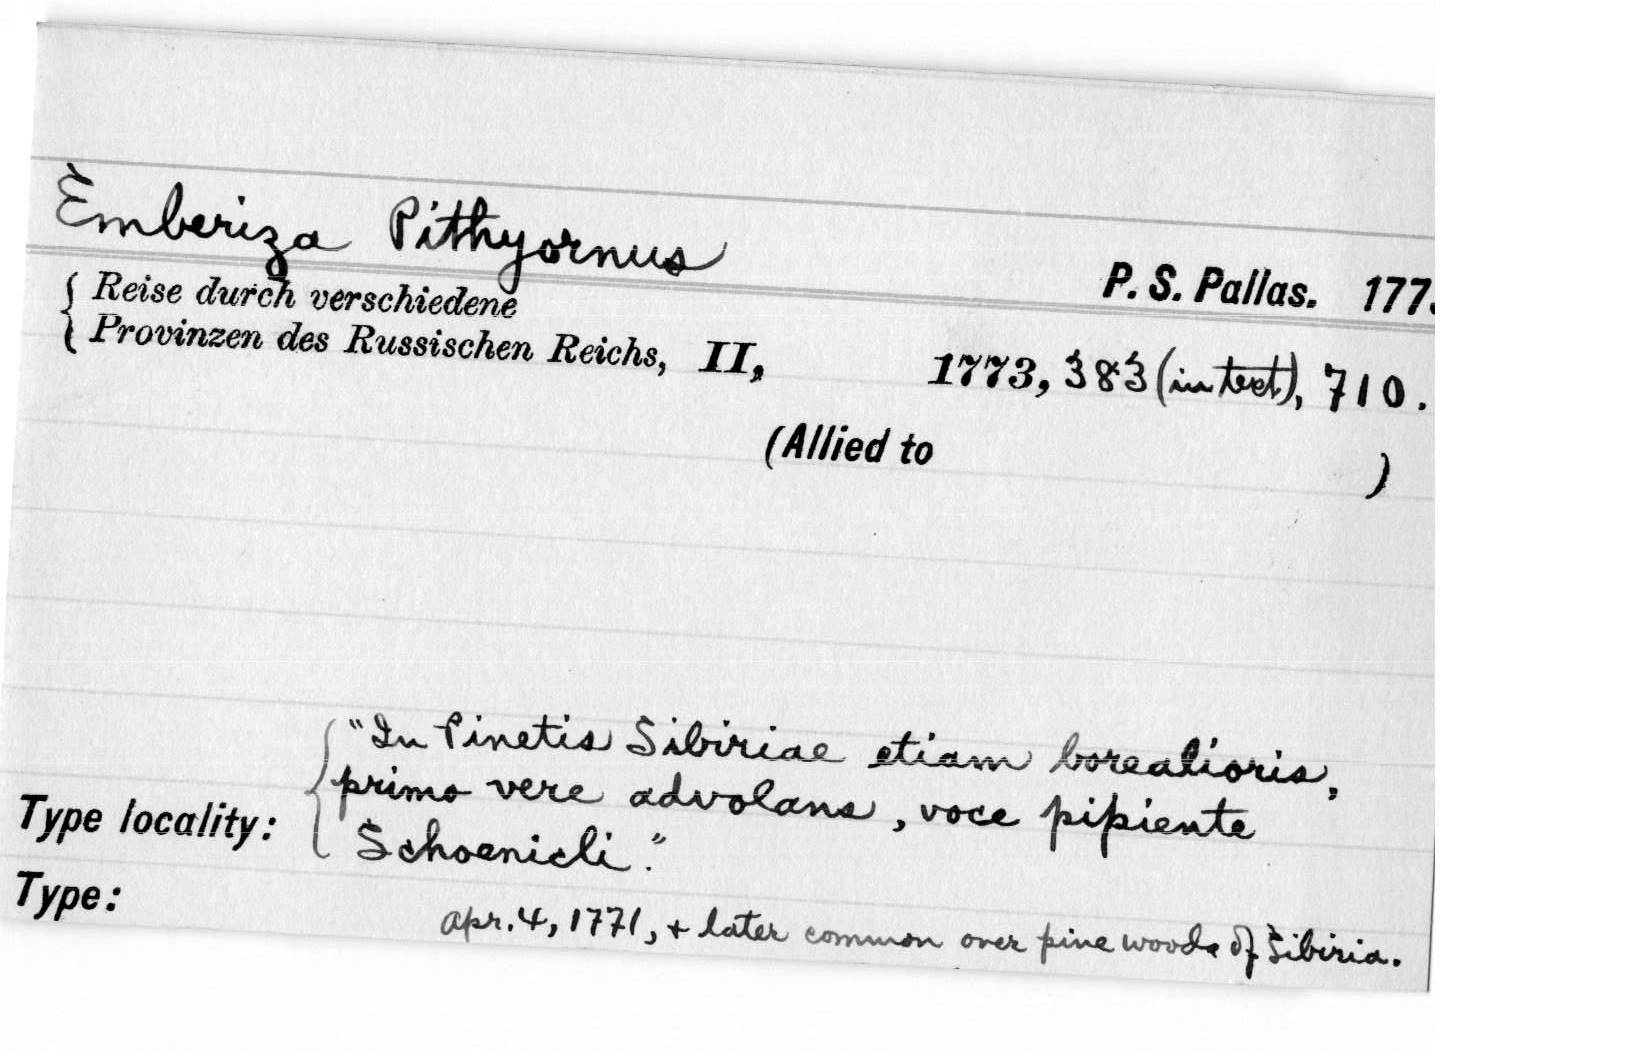 Emberiza Pithyornus
P. S. Pallas. 177
Reise durch verschiedene
Provinzen des Russischen Reichs, II, 1773, 383 (in text), 710.
(Allied to )
"In Pinetis Sibiriae etiam borealioris,
primo vere advolans, voce pipiente
Type locality: Schoenicli."
Type:
Apr. 4, 1771, + later common over pine woods of Sibiria.